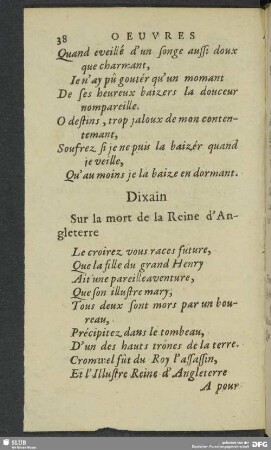 38 OEUVRES
Quand eveillé d'un songe aussi doux
que charmant,
Je n'ay pû goutér qu'un momant
De ses heureux baizers la douceur
nompareille.
O destins, trop jaloux de mon conten-
temant,
Soufrez si je ne puis la baizér quand
je veille,
Qu'au moins je la baize en dormant.
Dixain
Sur la mort de la Reine d'An-
gleterre
Le croirez vous races future,
Que la fille du grand Henry
Ait une pareille aventure,
Que son illustre mary,
Tous deux sont mors par un bou-
reau,
Précipitez dans le tombeau,
D'un des hauts trônes de la terre.
Cromwel fût du Roy l'assassin,
Et l'Illustre Reine d'Angleterre
A pour
SLUB